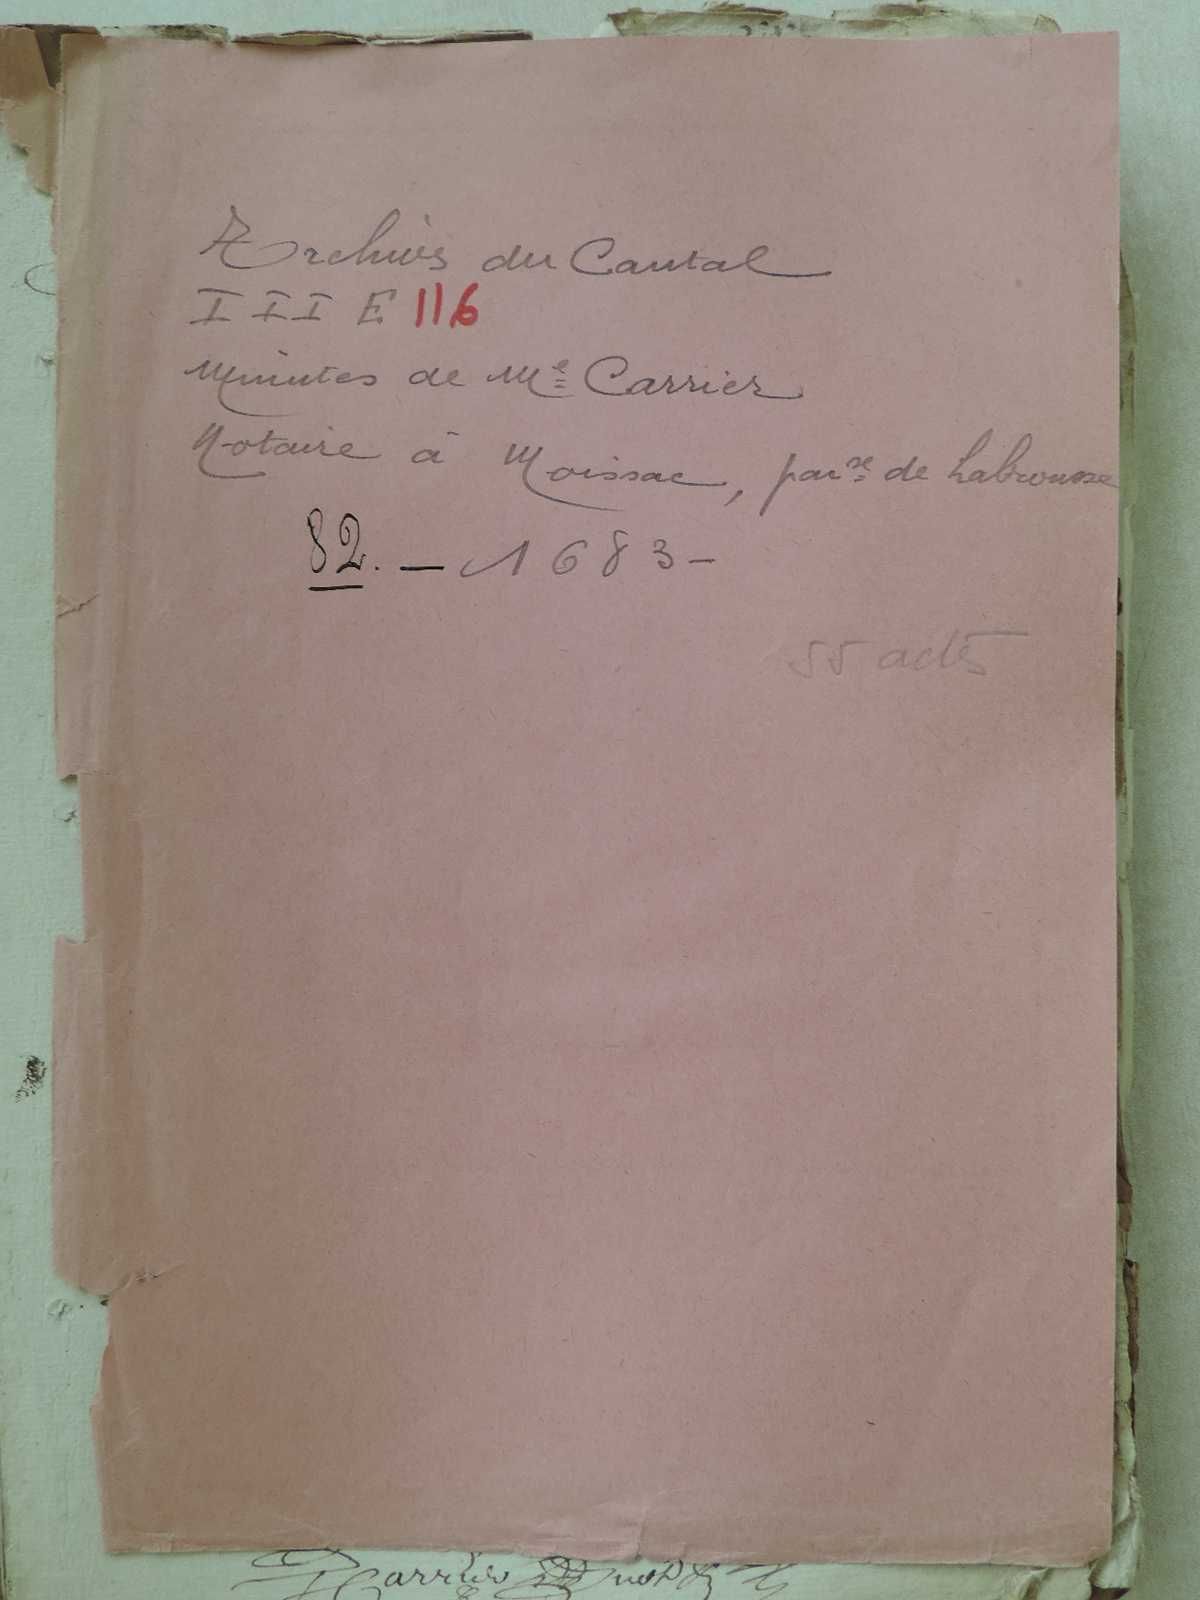 Archives du Cantal
III E 116
Minutes de Me Carrier
Notaire à Moissac, parse de Labrousse
82. — 1683 -
55 actes
Carrier